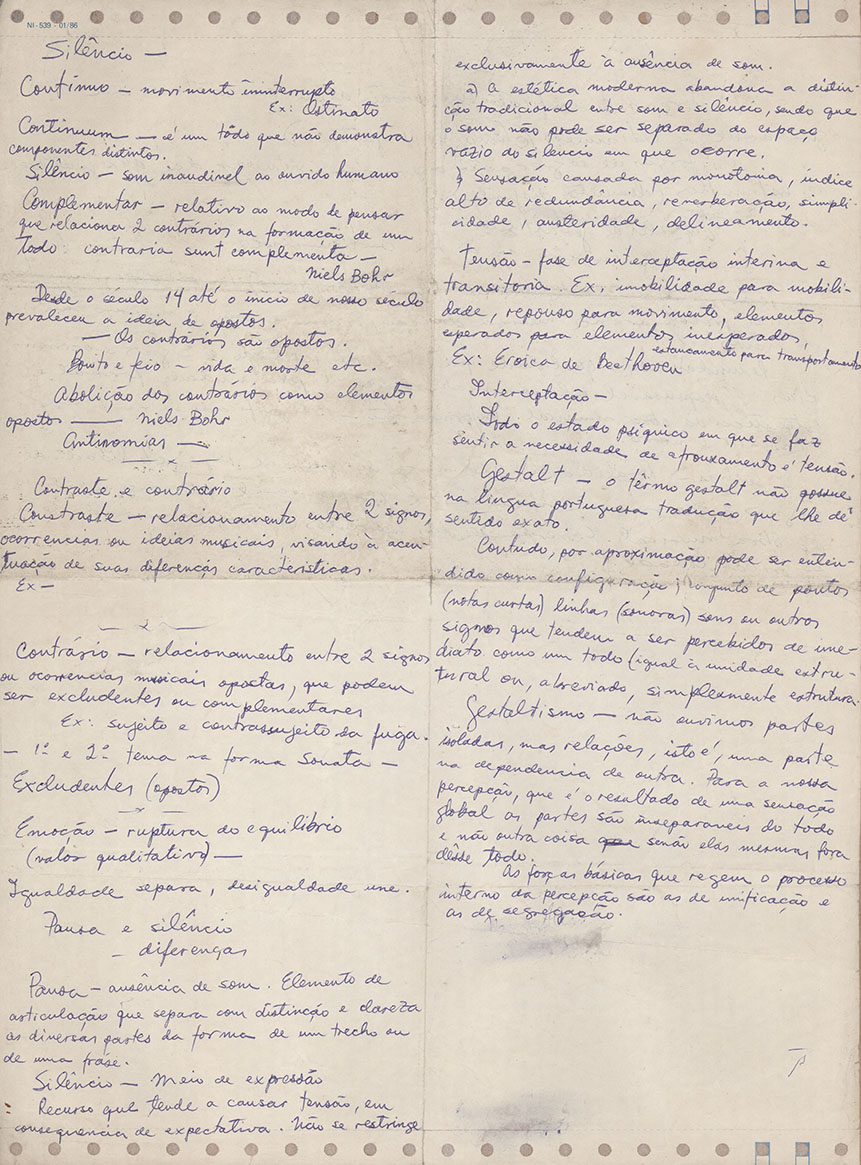 NI-539-01/86
Silêncio —
Contínuo — movimento ininterrupto
Ex: Ostinato
Continuum — é um tôdo que não demonstra
componentes distintos.
Silêncio — som inaudivel ao ouvido humano
Complementar — relativo ao modo de pensar
que relaciona 2 contrários na formação de um
Todo contraria sunt complementa —
Niels Bohr
Desde o século 14 até o inicio de nosso século
prevaleceu a ideia de opostos.
— Os contrários são opostos.
Bonito e feio — vida e morte etc.
Abolição dos contrários como elementos
opostos — Niels Bohr
Antinomias —
Contraste e contrário
Constraste — relacionamento entre 2 signos,
ocorrencias ou ideias musicais, visando à acen-
tuação de suas diferenças caracteristicas.
Ex —
Contrário — relacionamento entre 2 signos
ou ocorrencias musicais opostas, que podem
ser excludentes ou complementares
Ex: sujeito e contrassujeito da fuga.
— 1º e 2º tema na forma Sonata —
Excludentes (opostos)
Emoção — ruptura do equilibrio
(valor qualitativo) —
Igualdade separa, desigualdade une.
Pausa e silêncio
— diferenças
Pausa — ausência de som. Elemento de
articulação que separa com distinção e clareza
as diversas partes da forma de um trecho ou
de uma frase.
Silêncio — Meio de expressão
Recurso que tende a causar tensão, em
consequencia de expectativa. Não se restringe
exclusivamente à ausência de som.
a) A estética moderna abandona a distin-
ção tradicional entre som e silêncio, sendo que
o som não pode ser separado do espaço
vazio do silencio em que ocorre.
b) Sensação causada por monotonia, índice
alto de redundância, reverberação, simpli-
cidade, austeridade, delineamento.
Tensão — fase de interceptação interina e
transitoria. Ex, imobilidade para mobili-
dade, repouso para movimento, elementos
esperados para elementos inesperados,
estancamento para transportamento
Ex: Eroica de Beethoven
Interceptação —
Todo o estado psíquico em que se faz
sentir a necessidade de afrouxamento é tensão.
Gestalt — o têrmo gestalt não possue
na lingua portuguesa tradução que lhe dê
sentido exato.
Contudo, por aproximação pode ser enten-
dido como configuração; conjunto de pontos
(notas curtas) linhas (sonoras) sons ou outros
signos que tendem a ser percebidos de ime-
diato como um todo (igual à unidade estru-
tural ou, abreviado, simplesmente estrutura.
Gestaltismo — não ouvimos partes
isoladas, mas relações, isto é, uma parte
na dependencia de outra. Para a nossa
percepção, que é o resultado de uma sensação
global as partes são inseparaveis do todo
e não outra coisa que senão elas mesmas fora
dêsse todo.
As forças básicas que regem o processo
interno da percepção são as de unificação e
as de segregação.